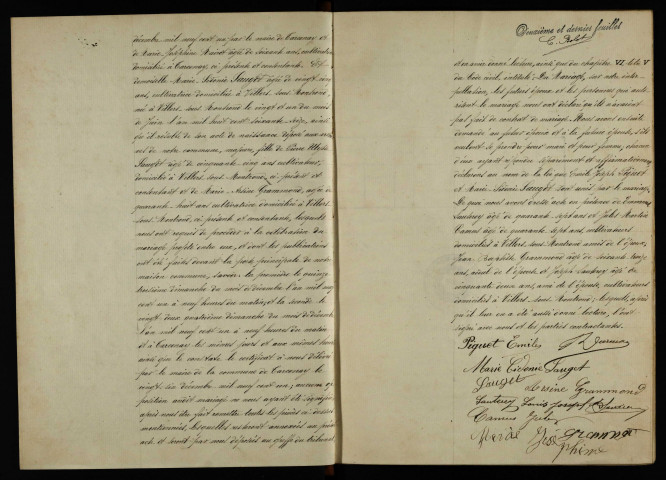 décembre mil neuf cent un par le maire de Carcenay et
de Marie Joséphine Maird âgée de soixante ans, cultivatrice
domiciliée à Carcenay, ci présente et consentante. Et
demoiselle Marie Sidonie Tauget âgée de vingt cinq
ans, cultivatrice domiciliée à Villers sous Montrond
née à Villers sous Montrond le vingt et un du mois
de Juin l'an mil huit cent soixante seize, ainsi
qu'il résulte de son acte de naissance déposé aux archi
ves de notre commune, majeure, fille de Pierre
Tauget âgé de cinquante cinq ans cultivateur,
domicilié à Villers sous Montrond, ci présent et
consentant et de Marie Grammond, âgée de
quarante huit ans cultivatrice domiciliée à Villers
sous Montrond, ci présente et consentante, lesquels
nous ont requis de procéder à la célébration du
mariage projeté entre eux, et dont les publications
ont été faites devant la porte principale de notre
maison commune, savoir la première le quinze
troisième dimanche du mois de décembre l'an mil neuf
cent un à neuf heures du matin, et la seconde le
vingt deux quatrième dimanche du mois de décembre
l'an mil neuf cent un à neuf heures du matin
et à Carcenay les mêmes jours et aux mêmes heures
ainsi que le constate le certificat à nous délivré
par le maire de la commune de Carcenay le
vingt décembre mil neuf cent un; aucune op
position audit mariage ne nous ayant été signifiée
après nous être fait remettre toutes les pièces ci dessus
mentionnées, lesquelles resteront annexées au présent
acte et seront par nous déposées au greffe du tribunal
Deuxième et dernier feuillet
donné lecture, ainsi que du chapitre VI titre V
du Code civil, intitulé Du Mariage, sur notre inter-
pellation, les futurs époux et les personnes qui auto-
risent le mariage nous ont déclaré qu'ils n'avaient
pas fait de contrat de mariage. Nous avons ensuite
demandé au futur époux et à la future épouse, s'ils
veulent se prendre pour mari et pour femme, chacun
d'eux ayant répondu séparément et affirmativement
déclarons au nom de la loi que Emile Joseph Piquet
et Marie Sidonie Tauget sont unis par le mariage.
De quoi nous avons dressé acte en présence de
âgé de quarante sept ans et Jules
Camus âgé de quarante sept ans, cultivateurs
domiciliés à Villers sous Montrond amis de l'époux,
Jean Baptiste Grammond âgé de soixante treize
ans, aïeul de l'épouse et Joseph âgé de
cinquante deux ans, ami de l'épouse, cultivateurs
domiciliés à Villers sous Montrond; lesquels, après
qu'il leur en a été aussi donné lecture, l'ont
signé avec nous et les parties contractantes.
Piquet Emile
Marie Sidonie Tauget
Tauget Grammond
Louis Joseph
Camus Jules
Maird José Grammond
phine